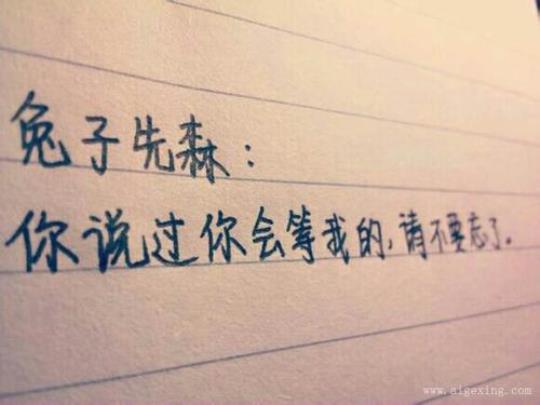 兔子先森：
你说过你会等我的，请不要忘了。
www.aigexing.com